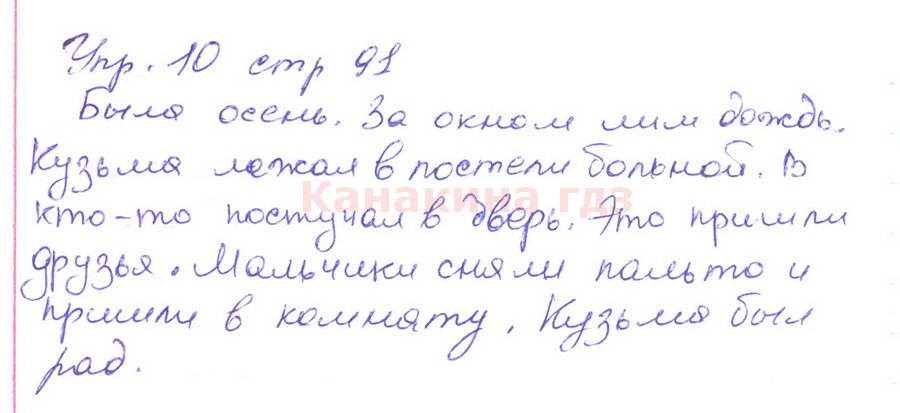 Упр. 10 стр 91
Была осень. За окном лил дождь.
Кузьма лежал в постели больной. В
Канакина гдз
кто-то постучал в дверь. Это пришли
друзья. Мальчики сняли пальто и
пришли в комнату. Кузьма был
рад.